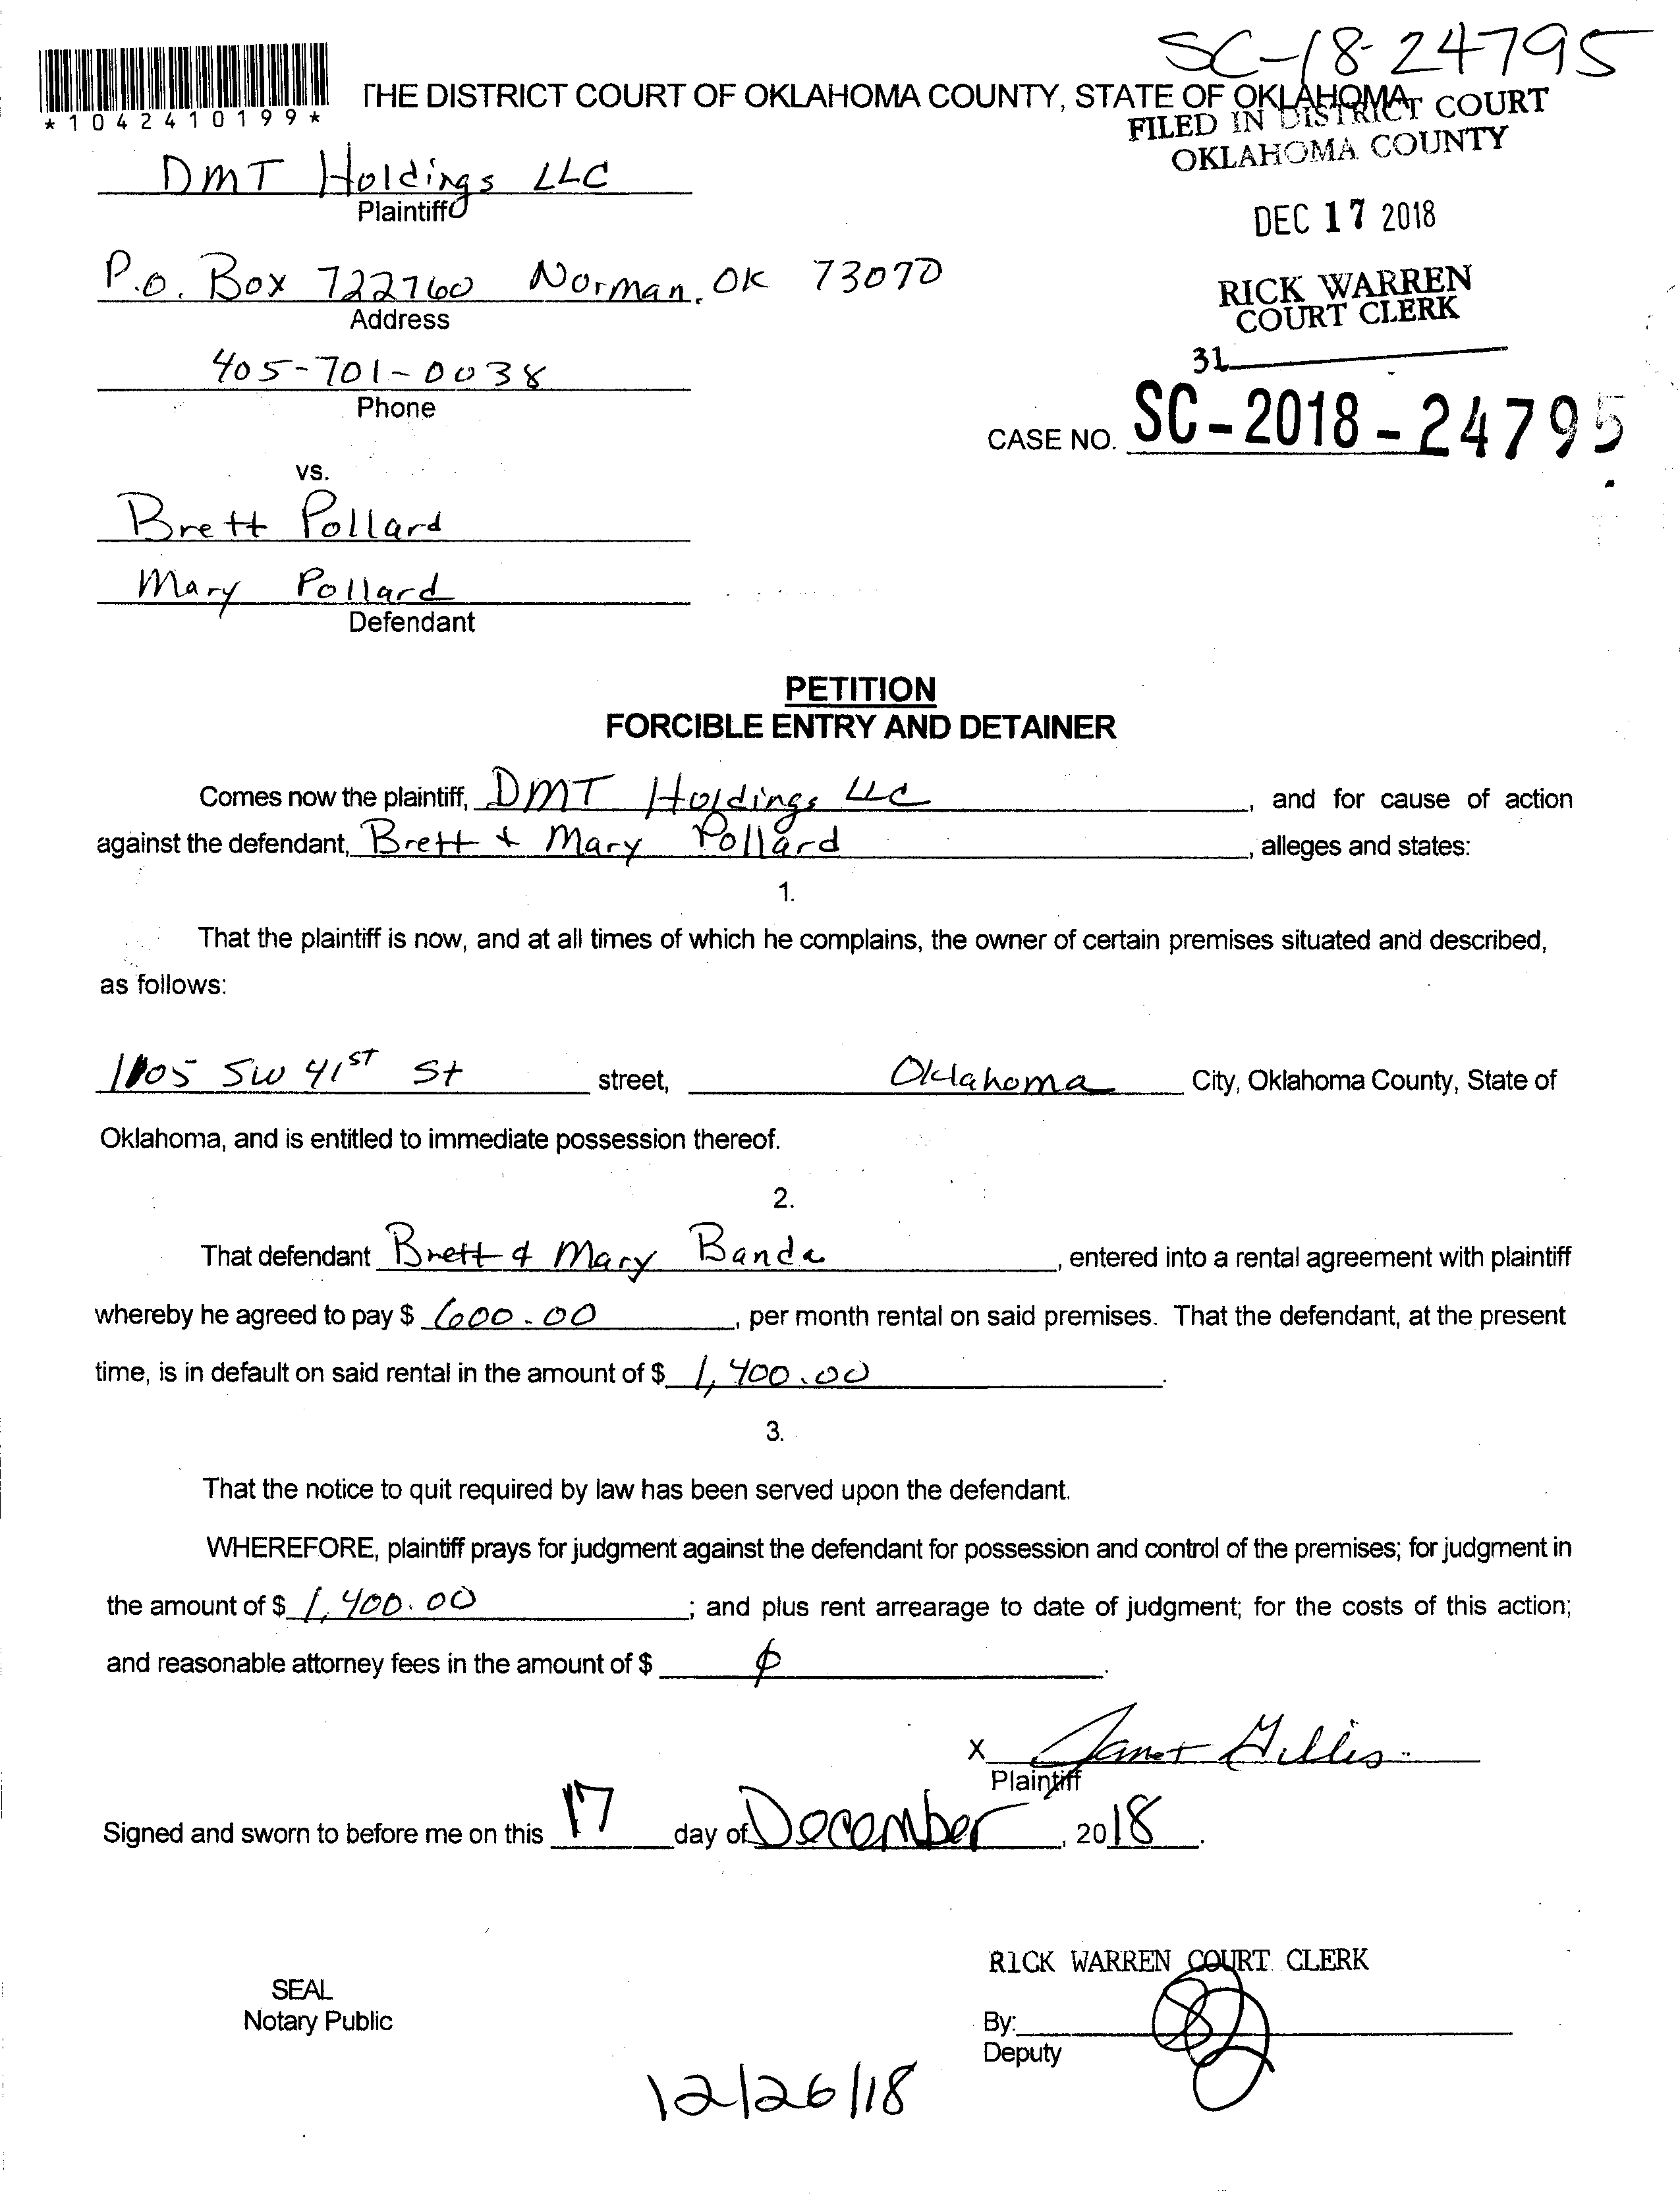 SC-18-24795
*1042410199*
THE DISTRICT COURT OF OKLAHOMA COUNTY, STATE OF OKLAHOMA
FILED IN DISTRICT COURT
OKLAHOMA COUNTY
DMT Holdings LLC
Plaintiff
DEC 17 2018
P.O. Box 722760 Norman, OK 73070
Address
RICK WARREN
COURT CLERK
405-701-0038
Phone
31
CASE NO. SC-2018-24795
vs.
Brett Pollard
Mary Pollard
Defendant
PETITION
FORCIBLE ENTRY AND DETAINER
Comes now the plaintiff, DMT Holdings LLC, and for cause of action
against the defendant, Brett & Mary Pollard, alleges and states:
1.
That the plaintiff is now, and at all times of which he complains, the owner of certain premises situated and described,
as follows:
1105 SW 41ST St street, Oklahoma City, Oklahoma County, State of
Oklahoma, and is entitled to immediate possession thereof.
2.
That defendant Brett & Mary Banda, entered into a rental agreement with plaintiff
whereby he agreed to pay $ 600.00, per month rental on said premises. That the defendant, at the present
time, is in default on said rental in the amount of $ 1,400.00.
3.
That the notice to quit required by law has been served upon the defendant.
WHEREFORE, plaintiff prays for judgment against the defendant for possession and control of the premises; for judgment in
the amount of $ 1,400.00; and plus rent arrearage to date of judgment; for the costs of this action;
and reasonable attorney fees in the amount of $ ϕ.
X Janet Gillis
Plaintiff
Signed and sworn to before me on this 17 day of December, 2018.
RICK WARREN COURT CLERK
SEAL
Notary Public
By:
Deputy
12/26/18